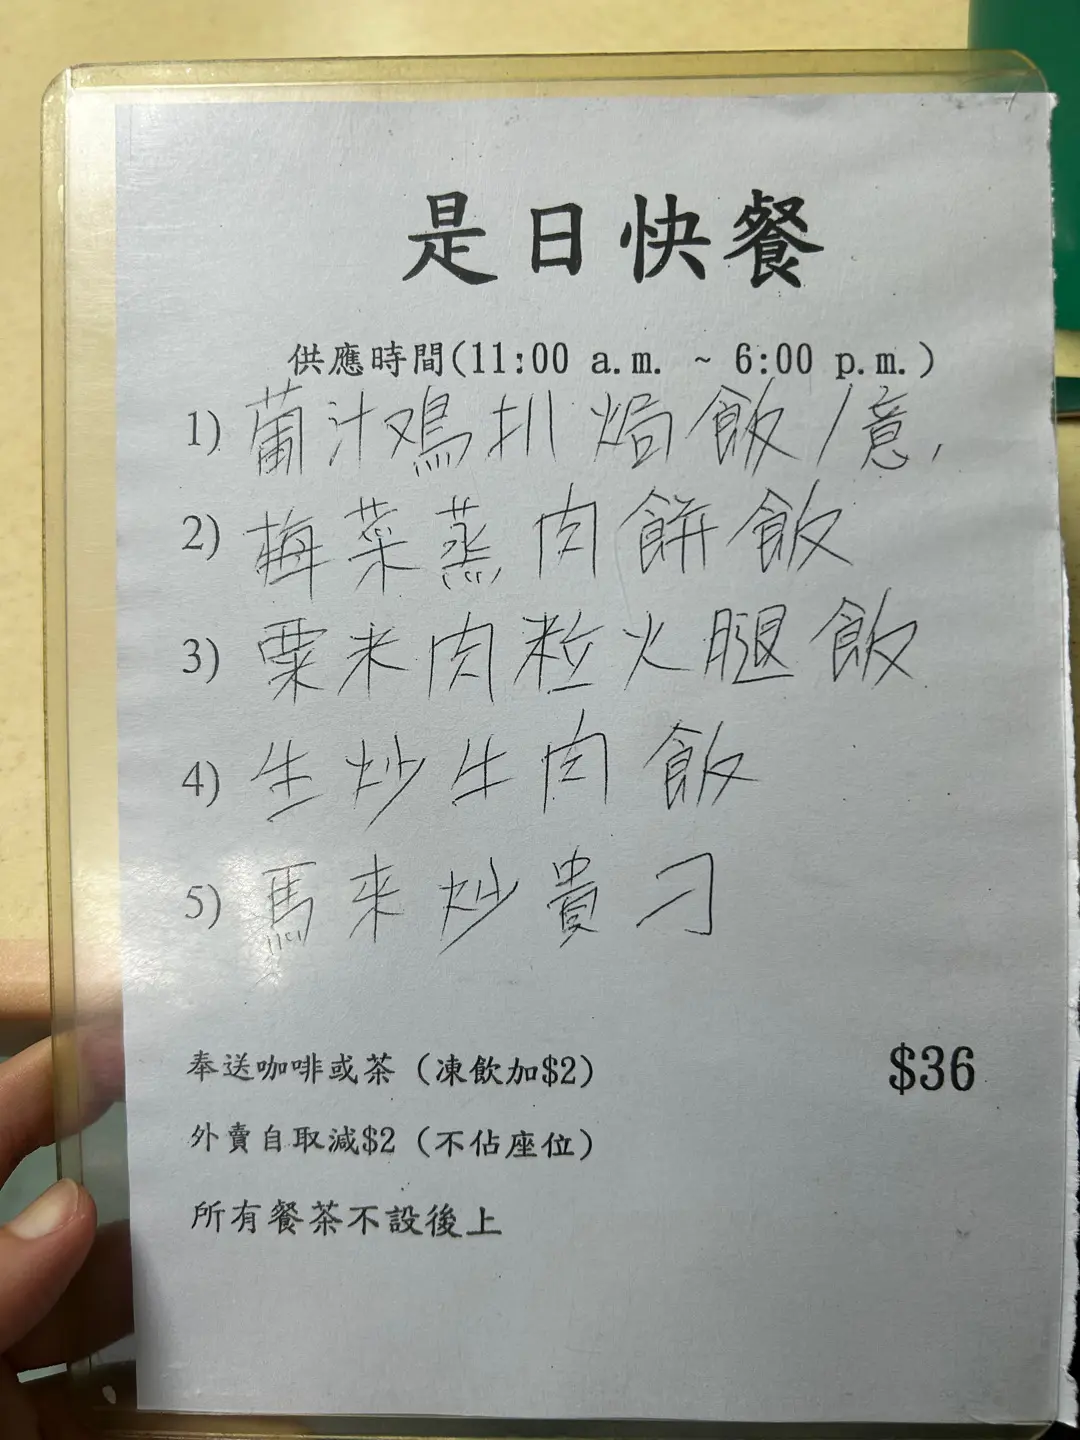 是日快餐
供應時間(11:00 a.m. ~ 6:00 p.m.)
1) 葡汁鸡扒焗飯/意,
2) 梅菜蒸肉餅飯
3) 粟米肉粒火腿飯
4) 生炒牛肉飯
5) 馬來炒貴刁
奉送咖啡或茶 (凍飲加$2) $36
外賣自取減$2 (不佔座位)
所有餐茶不設後上